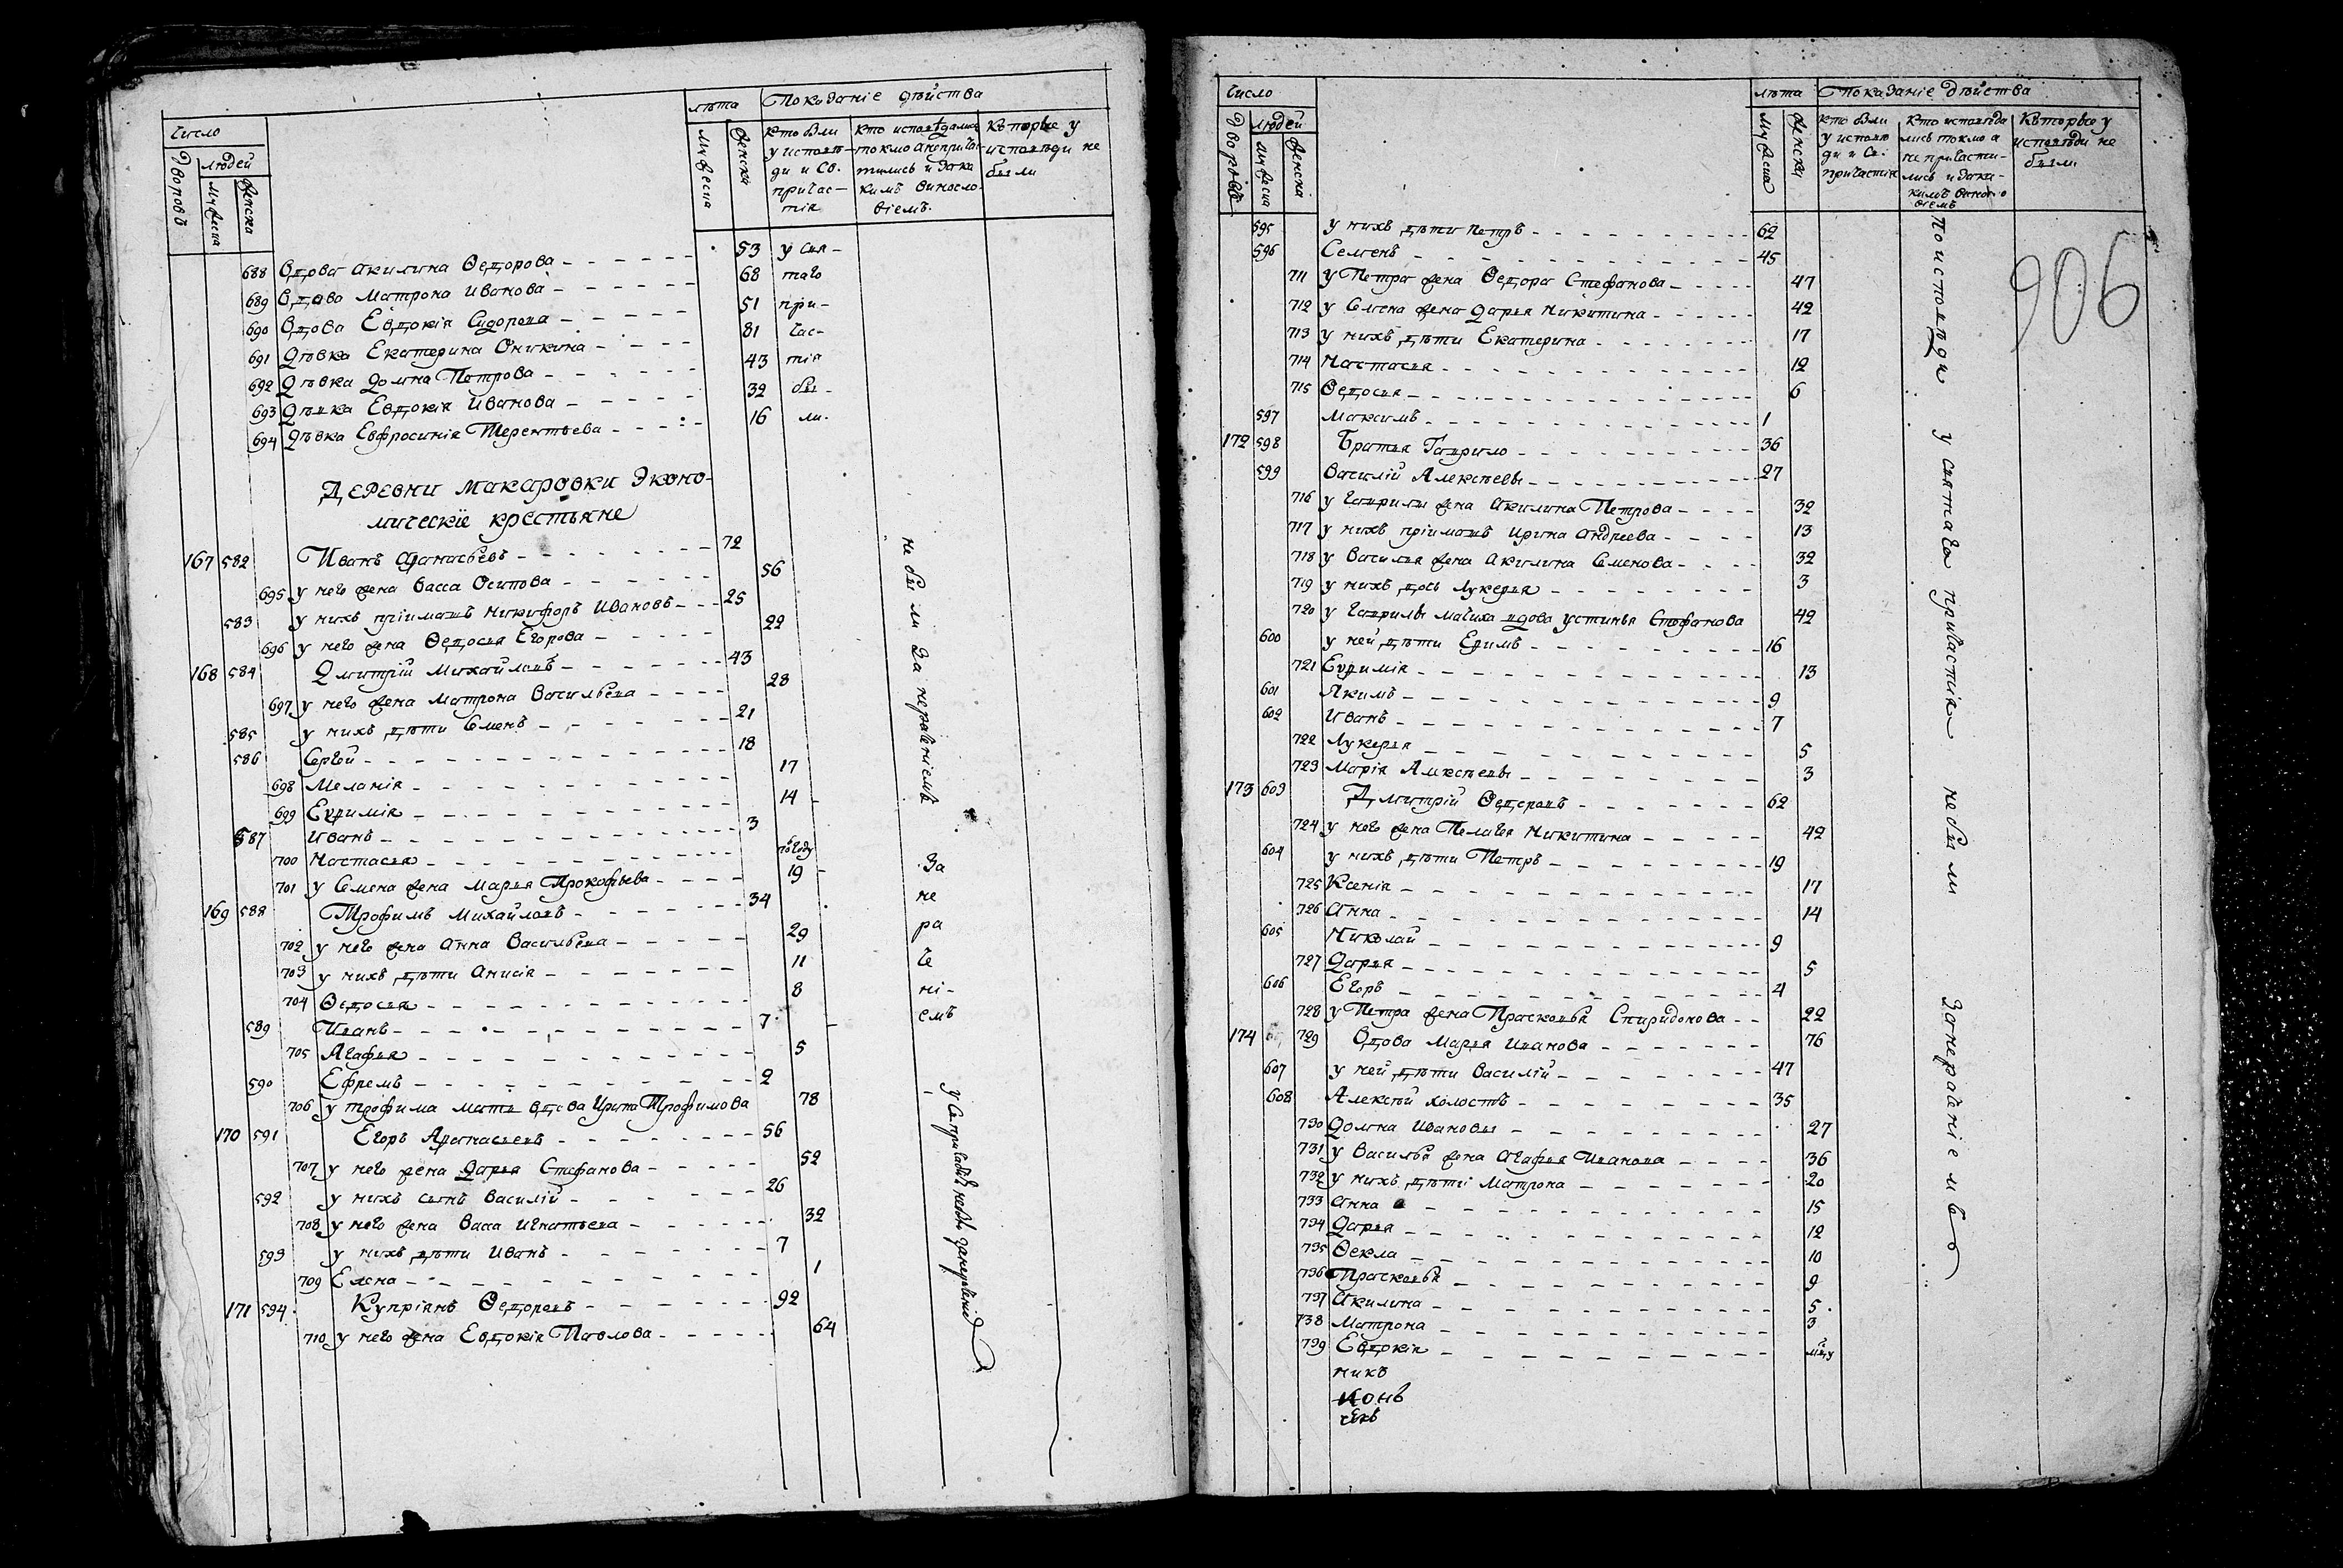 Число
дворовъ
людей
мужеска
женска
лѣта
мужеска
женска
Показаніе дѣйства
кто были у исповѣди и Св. причастія
кто исповѣдались токмо а непричастились и за какимъ винословіемъ.
Которые у исповѣди не были
688 Вдова Акилина Ѳедорова 53 у свя-
689 Вдова Матрона Иванова 68 таго
690 Вдова Евдокія Сидорова 51 при-
691 Дѣвка Екатерина Оникина 81 час-
692 Дѣвка Домна Петрова 43 тія
693 Дѣвка Евдокія Иванова 32 бы-
694 Дѣвка Евфросинія Терентьева 16 ли.
Деревни Макаровки Эконо-
мическіе крестьяне
167 582 Иванъ Афанасьевъ 72
695 у него жена Васса Осипова 56
583 у нихъ пріимашъ Никифоръ Ивановъ 25
696 у него жена Ѳедосья Егорова 22
168 584 Дмитрій Михайловъ 43
697 у него жена Матрона Васильева 28
585 у нихъ дѣти Семенъ 21
586 Сергей 18
698 Меланія 17
699 Ефимія 14
587 Иванъ 3
700 Настасья полгоду
701 у Семена жена Марья Прокофьева 19
169 588 Трофимъ Михайловъ 34
702 у него жена Анна Васильева 29
703 у нихъ дѣти Анисія 11
704 Ѳедосья 8
589 Иванъ 7
705 Агафья 5
590 Ефремъ 2
706 у Трофима мать вдова Ирина Трофимова 78
170 591 Егоръ Афанасьевъ 56
707 у него жена Дарья Стефанова 52
592 у нихъ сынъ Василій 26
708 у него жена Васса Игнатьева 32
593 у нихъ дѣти Иванъ 7
709 Елена 1
171 594 Купріянъ Ѳедоровъ 92
710 у него жена Евдокія Павлова 64
не были за нераченіемъ
За
не
ра
че
ні-
емъ
Число
дворовъ
людей
мужеска
женска
лѣта
мужеска
женска
Показаніе дѣйства
кто были у исповѣди и Св. причастія
кто исповѣдались токмо а не причастились и за какимъ винословіемъ
Которые у исповѣди не были
906
595 у нихъ дѣти Петръ 62
596 Семенъ 45
711 у Петра жена Ѳедора Стефанова 47
712 у Семена жена Дарья Никитина 42
713 у нихъ дѣти Екатерина 17
714 Настасья 12
715 Ѳедосья 6
597 Максимъ 1
172 598 Братья Гаврило 36
599 Василій Алексѣевы 27
716 у Гаврилы жена Акилина Петрова 32
717 у нихъ пріимашъ Ирина Андреева 13
718 у Василья жена Акилина Семенова 32
719 у нихъ дочь Лукерья 3
720 у Гаврилы мачиха вдова Устинья Стефанова 42
600 у ней дѣти Ефимъ 16
721 Ефимія 13
601 Якимъ 9
602 Иванъ 7
722 Лукерья 5
723 Марія Алексѣевы 3
173 603 Дмитрій Ѳедоровъ 62
724 у него жена Пелагея Никитина 42
604 у нихъ дѣти Петръ 19
725 Ксенія 17
726 Анна 14
605 Николай 9
727 Дарья 5
606 Егоръ 4
728 у Петра жена Прасковья Спиридонова 22
174 729 Вдова Марья Иванова 76
607 у ней дѣти Василій 47
608 Алексѣй холостъ 35
730 Домна Ивановы 27
731 у Василья жена Агафья Иванова 36
732 у нихъ дѣти Матрона 20
733 Анна 15
734 Дарья 12
735 Ѳекла 10
736 Прасковья 9
737 Акилина 5
738 Матрона 3
739 Евдокія
никъ
у святаго причастія не были за нераченіемъ